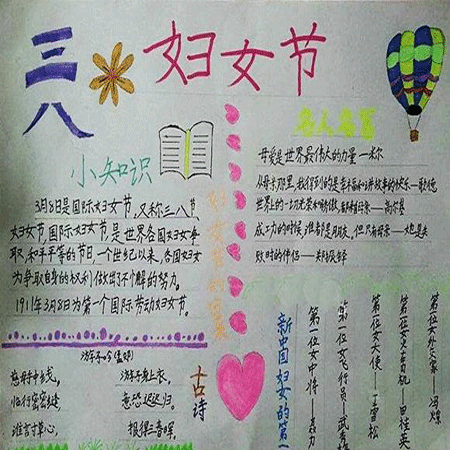 三八
妇女节
小知识
3月8日是国际妇女节,又称三八节,
妇女节,国际妇女节,是世界各国妇女争
取和平平等的节日,一个世纪以来,各国妇女
为争取自身的权利做出了不懈的努力。
1911年3月8日为第一个国际劳动妇女节。
名人名言
母爱是世界最伟大的力量—米尔
世界上的一切光荣和
高尔基
成功的时候,谁都是朋友,但只有母亲—她是失
败时的伴侣—郑振铎
游子吟
慈母手中线,
游子身上衣。
临行密密缝,
意恐迟迟归。
谁言寸草心,
报得三春晖。
古诗
新中国妇女的第一
第一位女中将—聂力
第一位女飞行员—武秀梅
第一位女大使—丁雪松
第一位女火车司机—田桂英
第一位女外交家—冯嫽